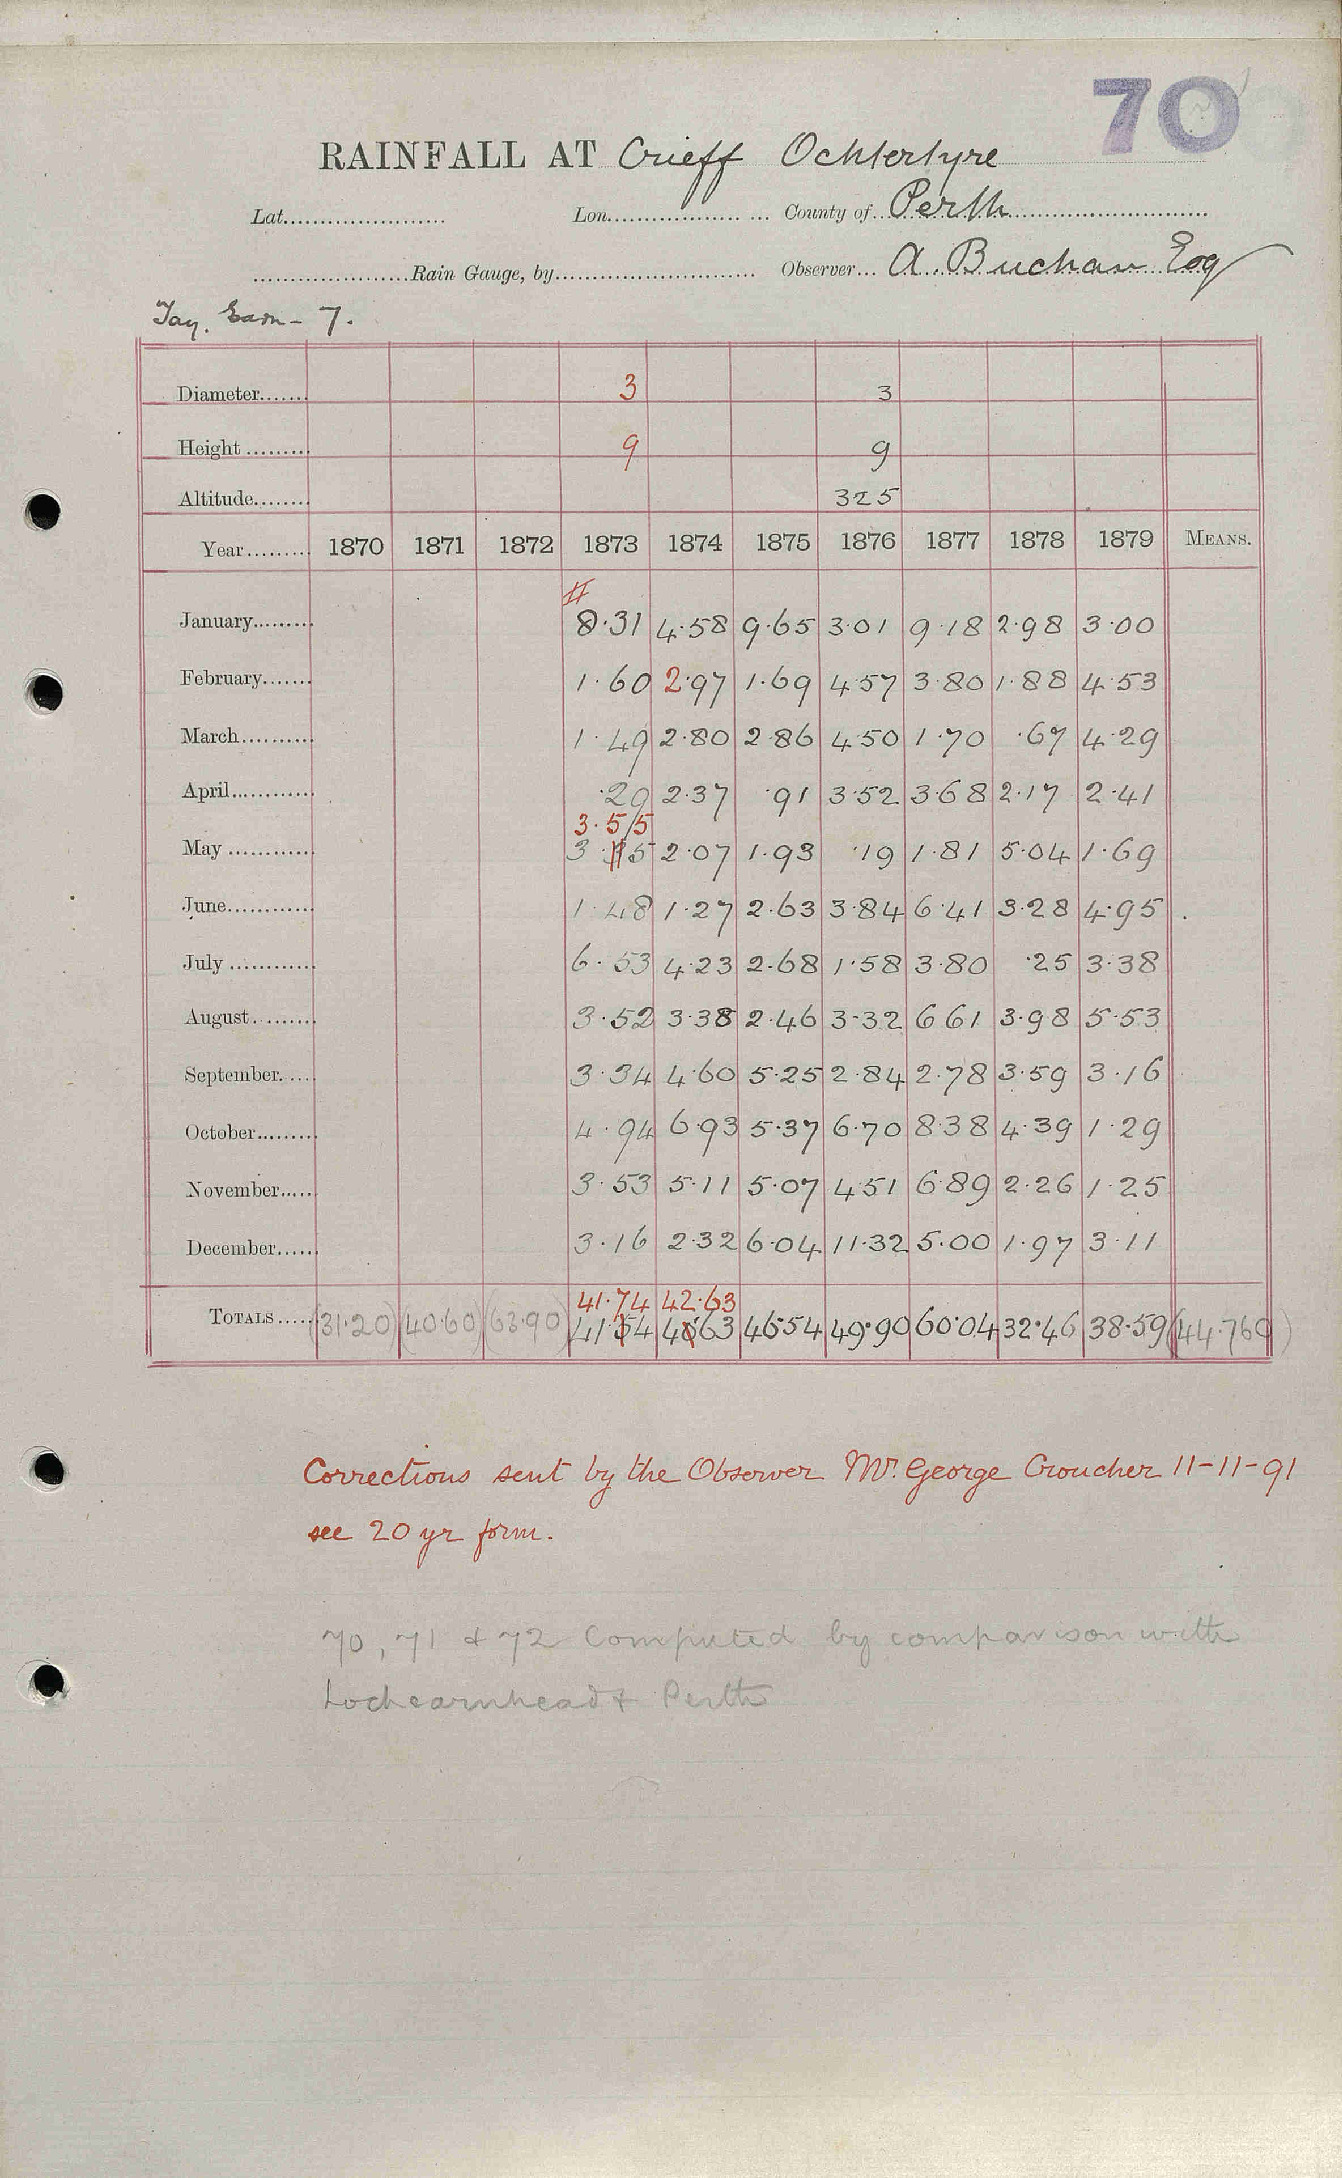 70
RAINFALL AT Crieff Ochtertyre
Lat...................... Lon...................... County of Perth
......................Rain Gauge, by........................... Observer... A. Buchan Esq
Tay. Earn - 7.
Diameter....... 3 3
Height ......... 9 9
Altitude........ 325
Year......... 1870 1871 1872 1873 1874 1875 1876 1877 1878 1879 MEANS.
#
January......... 8·31 4·58 9·65 3·01 9·18 2·98 3·00
February....... 1·60 2·97 1·69 4·57 3·80 1·88 4·53
March.......... 1·49 2·80 2·86 4·50 1·70 ·67 4·29
April............ ·29 2·37 ·91 3·52 3·68 2·17 2·41
3·55
May ............ 3·35 2·07 1·93 ·19 1·81 5·04 1·69
June............ 1·48 1·27 2·63 3·84 6·41 3·28 4·95
July ............ 6·53 4·23 2·68 1·58 3·80 ·25 3·38
August......... 3·52 3·38 2·46 3·32 6 61 3·98 5·53
September..... 3·34 4·60 5·25 2·84 2·78 3·59 3·16
October......... 4·94 6·93 5·37 6·70 8·38 4·39 1·29
November..... 3·53 5·11 5·07 4·51 6·89 2·26 1·25
December...... 3·16 2·32 6·04 11·32 5·00 1·97 3·11
41·74 42·63
TOTALS...... (31·20) (40·60) (63·90) 41·54 40·63 46·54 49·90 60·04 32·46 38·59 (44·769)
Corrections sent by the Observer Mr. George Croucher 11-11-91
see 20 yr form.
70, 71 & 72 Computed by comparison with
Lochearnhead & Perth